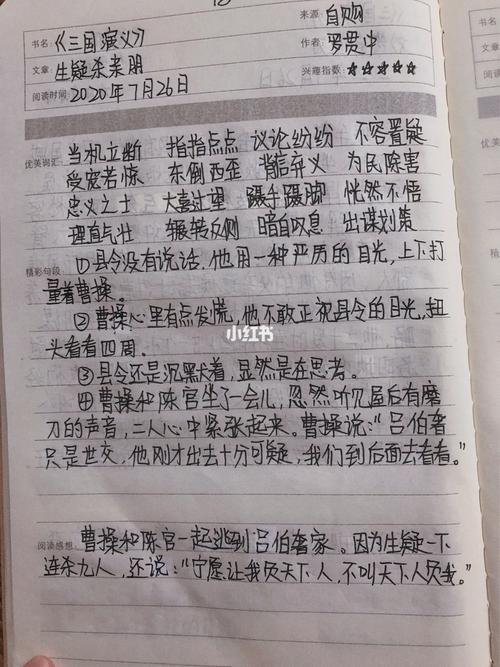 来源: 自购
书名: 《三国演义》
作者: 罗贯中
文章: 生疑杀亲朋
兴趣指数: ☆☆☆☆☆
阅读时间: 2020年7月26日
优美词汇:
当机立断 指指点点 议论纷纷 不容置疑
受宠若惊 东倒西歪 背信弃义 为民除害
忠义之士 大喜过望 蹑手蹑脚 恍然不悟
理直气壮 辗转反侧 暗自叹息 出谋划策
精彩句段:
①县令没有说话,他用一种严厉的目光,上下打
量着曹操。
②曹操心里有点发慌,他不敢正视县令的目光,扭
头看看四周。
③县令还是沉默着,显然是在思考。
④曹操和陈宫坐了一会儿,忽然听见屋后有磨
刀的声音,二人心中紧张起来。曹操说:“吕伯奢
只是世交,他刚才出去十分可疑,我们到后面去看看。”
小红书
阅读感想:
曹操和陈宫一起逃到吕伯奢家。因为生疑一下
连杀九人,还说:“宁愿让我负天下人,不叫天下人负我。”